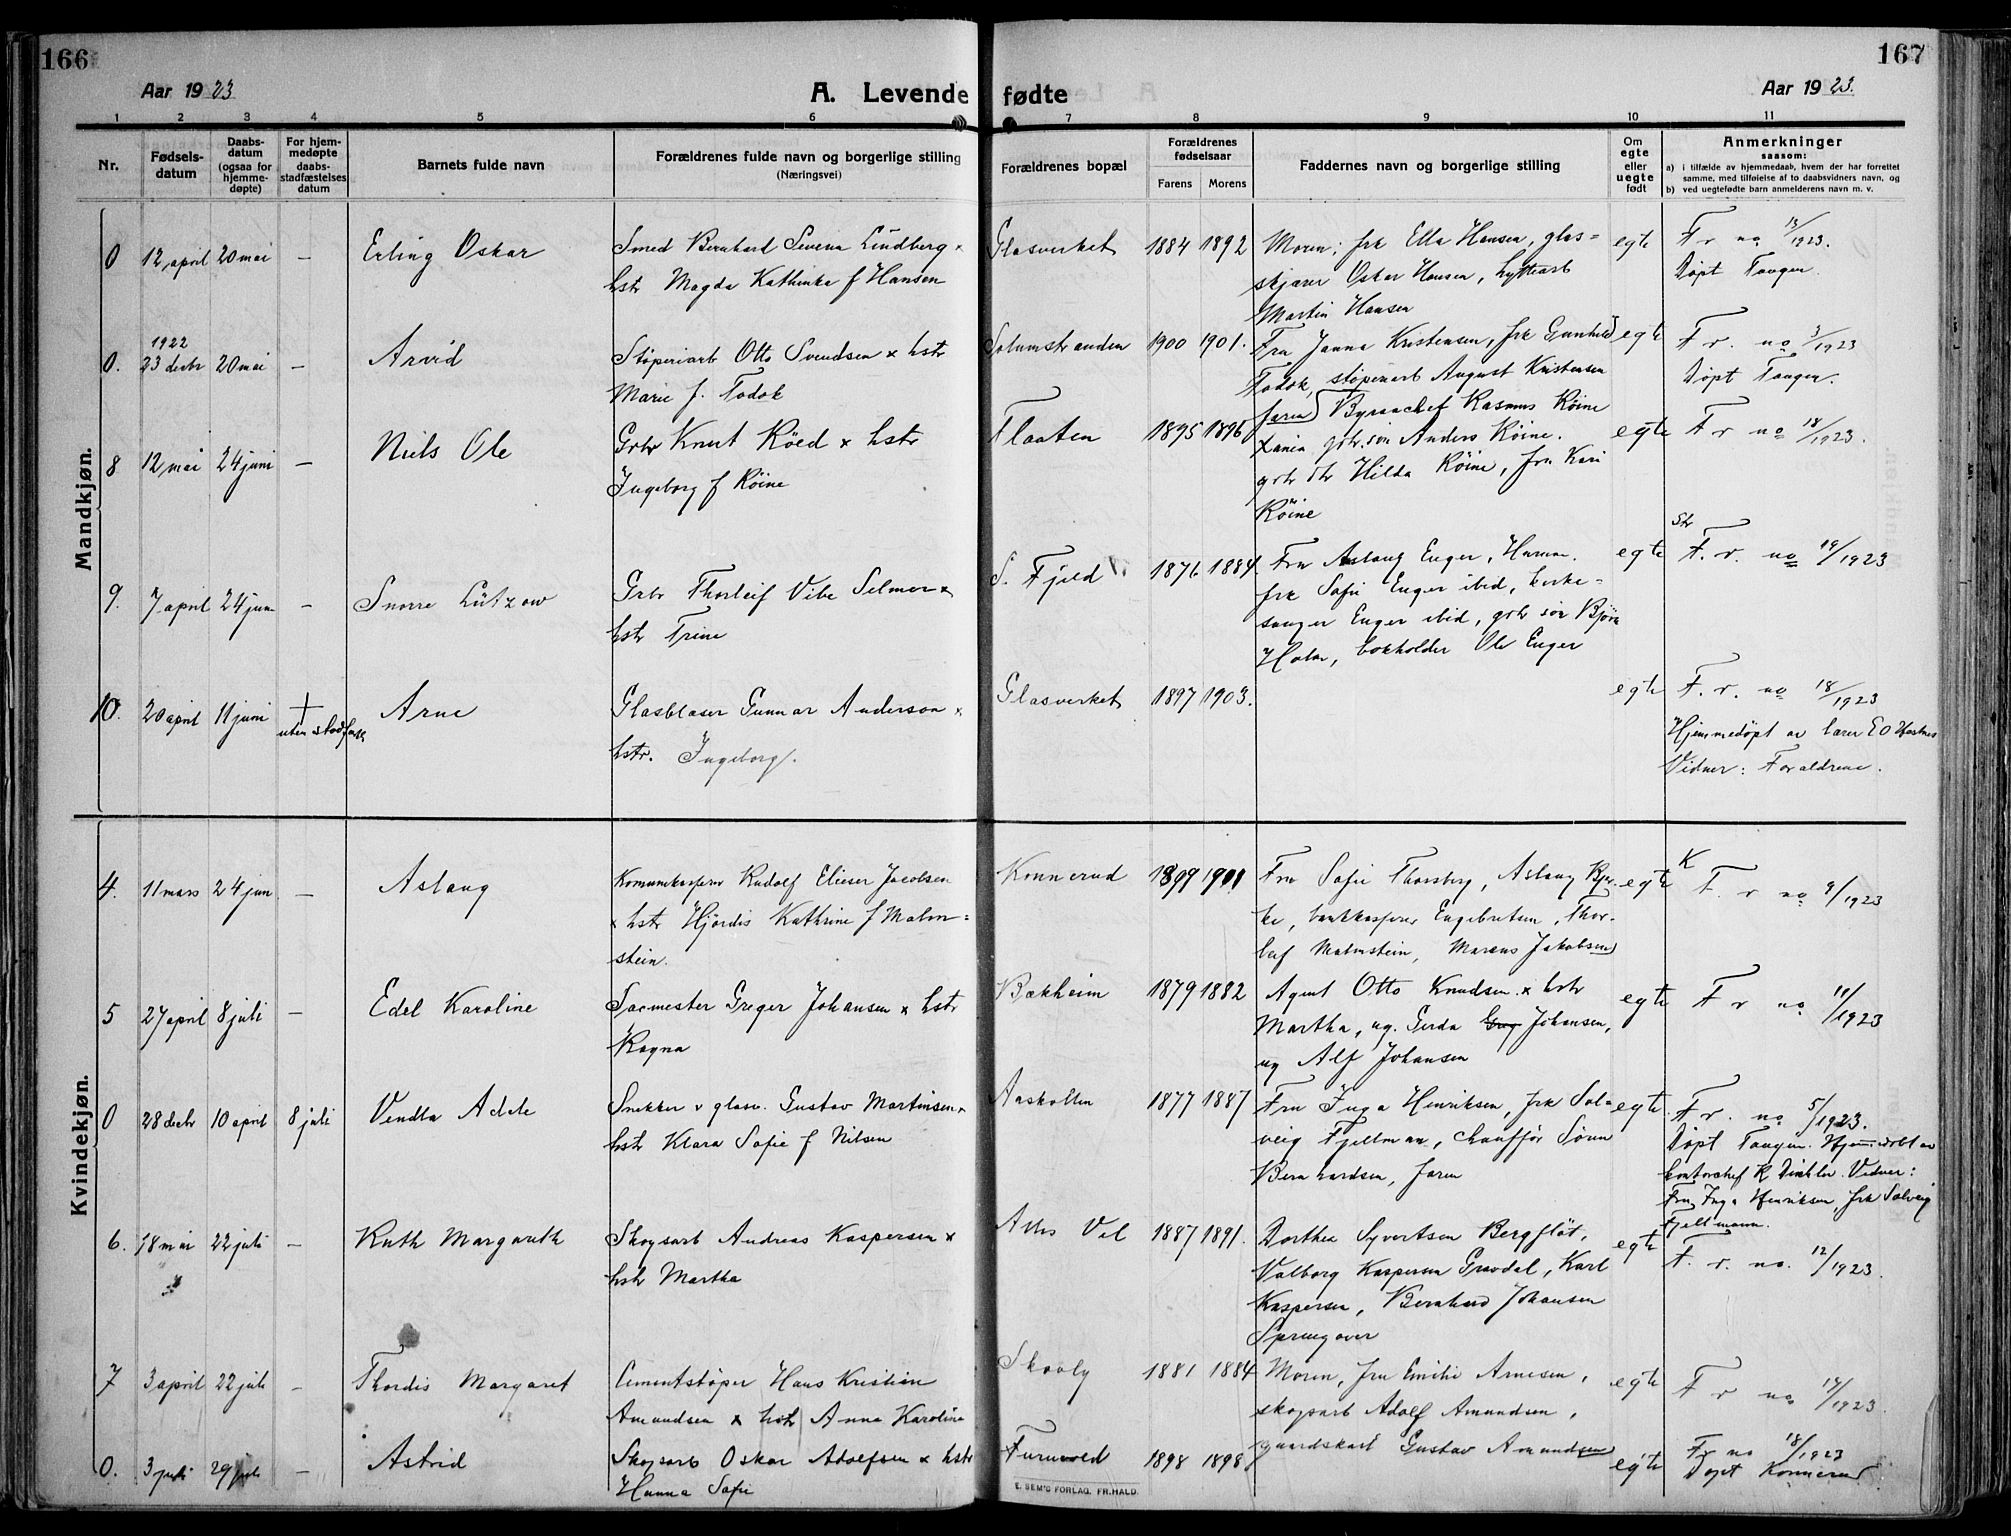 166
167
Aar 1923
A. Levende fødte
Aar 1923.
1 2 3 4 5 6 7 8 9 10 11
Nr.
Fødselsdatum
Daabsdatum (ogsaa for hjemmedøpte)
For hjemmedøpte daabsstadfæstelses datum
Barnets fulde navn
Forældrenes fulde navn og borgerlige stilling
(Næringsvei)
Forældrenes bopæl
Forældrenes fødselsaar
Farens Morens
Faddernes navn og borgerlige stilling
Om egte eller uegte født
Anmerkninger
saasom:
a) i tilfælde av hjemmedaab, hvem der har forrettet
samme, med tilføielse af to daabsvidners navn, og
b) ved uegtefødte barn anmelderens navn m. v.
Mandkjøn.
0 12 april 20 mai – Erling Oskar Smed Bernhard Severin Lindberg x Glasverket 1884 1892 Moren, frk Ella Hansen, glas- egte F r no 13/1923.
hstr Magda Kathinka f Hansen skjærer Oskar Hansen, hyttearb Døpt Tangen.
Martin Hansen
1922
0. 23 decbr 20 mai – Arvid Støperiarb Otto Svendsen x hstr Solumstranden 1900 1901. Fru Janna Kristensen, frk Gunhild egte F. r. no 3/1923
Marie f. Todok Todok, støperiarb August Kristensen Døpt Tangen.
faren
8 12 mai 24 juni – Niels Ole Grbr Knut Röed x hstr Flaaten 1895 1896 Byraachef Rasmus Röine egte F r no 18/1923.
Ingeborg f Röine Xania, grbr søn Anders Röine.
grbr dtr Hilda Röine, fru Kari
Röine
9. 7 april 24 juni – Snorre Lützow Grbr Thorleif Vibe Selmer x S. Fjeld 1876 1884. Fru Aslaug Enger, Hurum. egte Str F. r. no 19/1923
hstr Trine frk Sofie Enger ibid, kirke-
sanger Enger ibid, grbr søn Bjørn
Holm, bokholder Ole Enger
10. 20 april 11 juni + uten stadfæst Arne Glasblaser Gunnar Anderson x Glasverket 1897 1903. egte F. r. no 18/1923
hstr. Ingeborg f. Hjemmedøpt av lærer E O Hostnes
Vidner: Forældrene.
Kvindekjøn.
4. 11 mars 24 jun – Aslaug Komunekasserer Rudolf Elieser Jacobsen Konnerud 1899 1901 Fru Sofie Thorsberg, Aslaug Bjer- egte K F. r no 9/1923
x hstr Hjørdis Kathrine f Malm- ke, bankkasserer Engebretsen, Thor-
stein. leif Malmstein, Marcus Jakobsen
5 27 april 8 juli – Edel Karoline Sacmester Greger Johansen x hstr Bækheim 1879 1882 Agent Otto Knudsen x hstr egte F r no 11/1923
Ragna Martha, ug. Gerda Greg Johansen,
ug Alf Johansen
0 28 decbr 10 april 8 juli Vendla Adele Snekker v glasv. Gustav Martinsen x Aaskollen 1877 1887 Fru Inga Henriksen, frk Sol- egte F. r. no 5/1923.
hstr Klara Sofie f Nilsen veig Fjeltman, chauffør Søren Døpt Tangen. Hjemmedøbt av
Bernhardsen, faren kontorchef R Dinhler. Vidner:
Fru Inga Henriksen, frk Solveig
Fjeltmann.
6. 18 mai 22 juli – Ruth Margareth Skogsarb Andreas Kaspersen x Alles Vel 1887 1891. Dorthea Syvertsen Bergfløt, egte F. r. no. 12/1923.
hstr Martha Valborg Kaspersen Gravdal, Karl
Kaspersen, Bernhard Johansen
Springover
7 3 april 22 juli – Thordis Margaret Cementstøper Hans Kristian Skovly 1881 1884 Moren, fru Emilie Arnesen, egte F r no 14/1923.
Amundsen x hstr Anna Karoline skogsarb Adolf Amundsen,
gaardskarl Gustav Amundsen
0. 3 juli 29 juli – Astrid Skogsarb Oskar Adolfsen x hstr Furuvold 1898 1898 egte Fr no 18/1923
Hanna Sofie Døpt Konnerud
E. SEM'S FORLAG. FR.HALD.